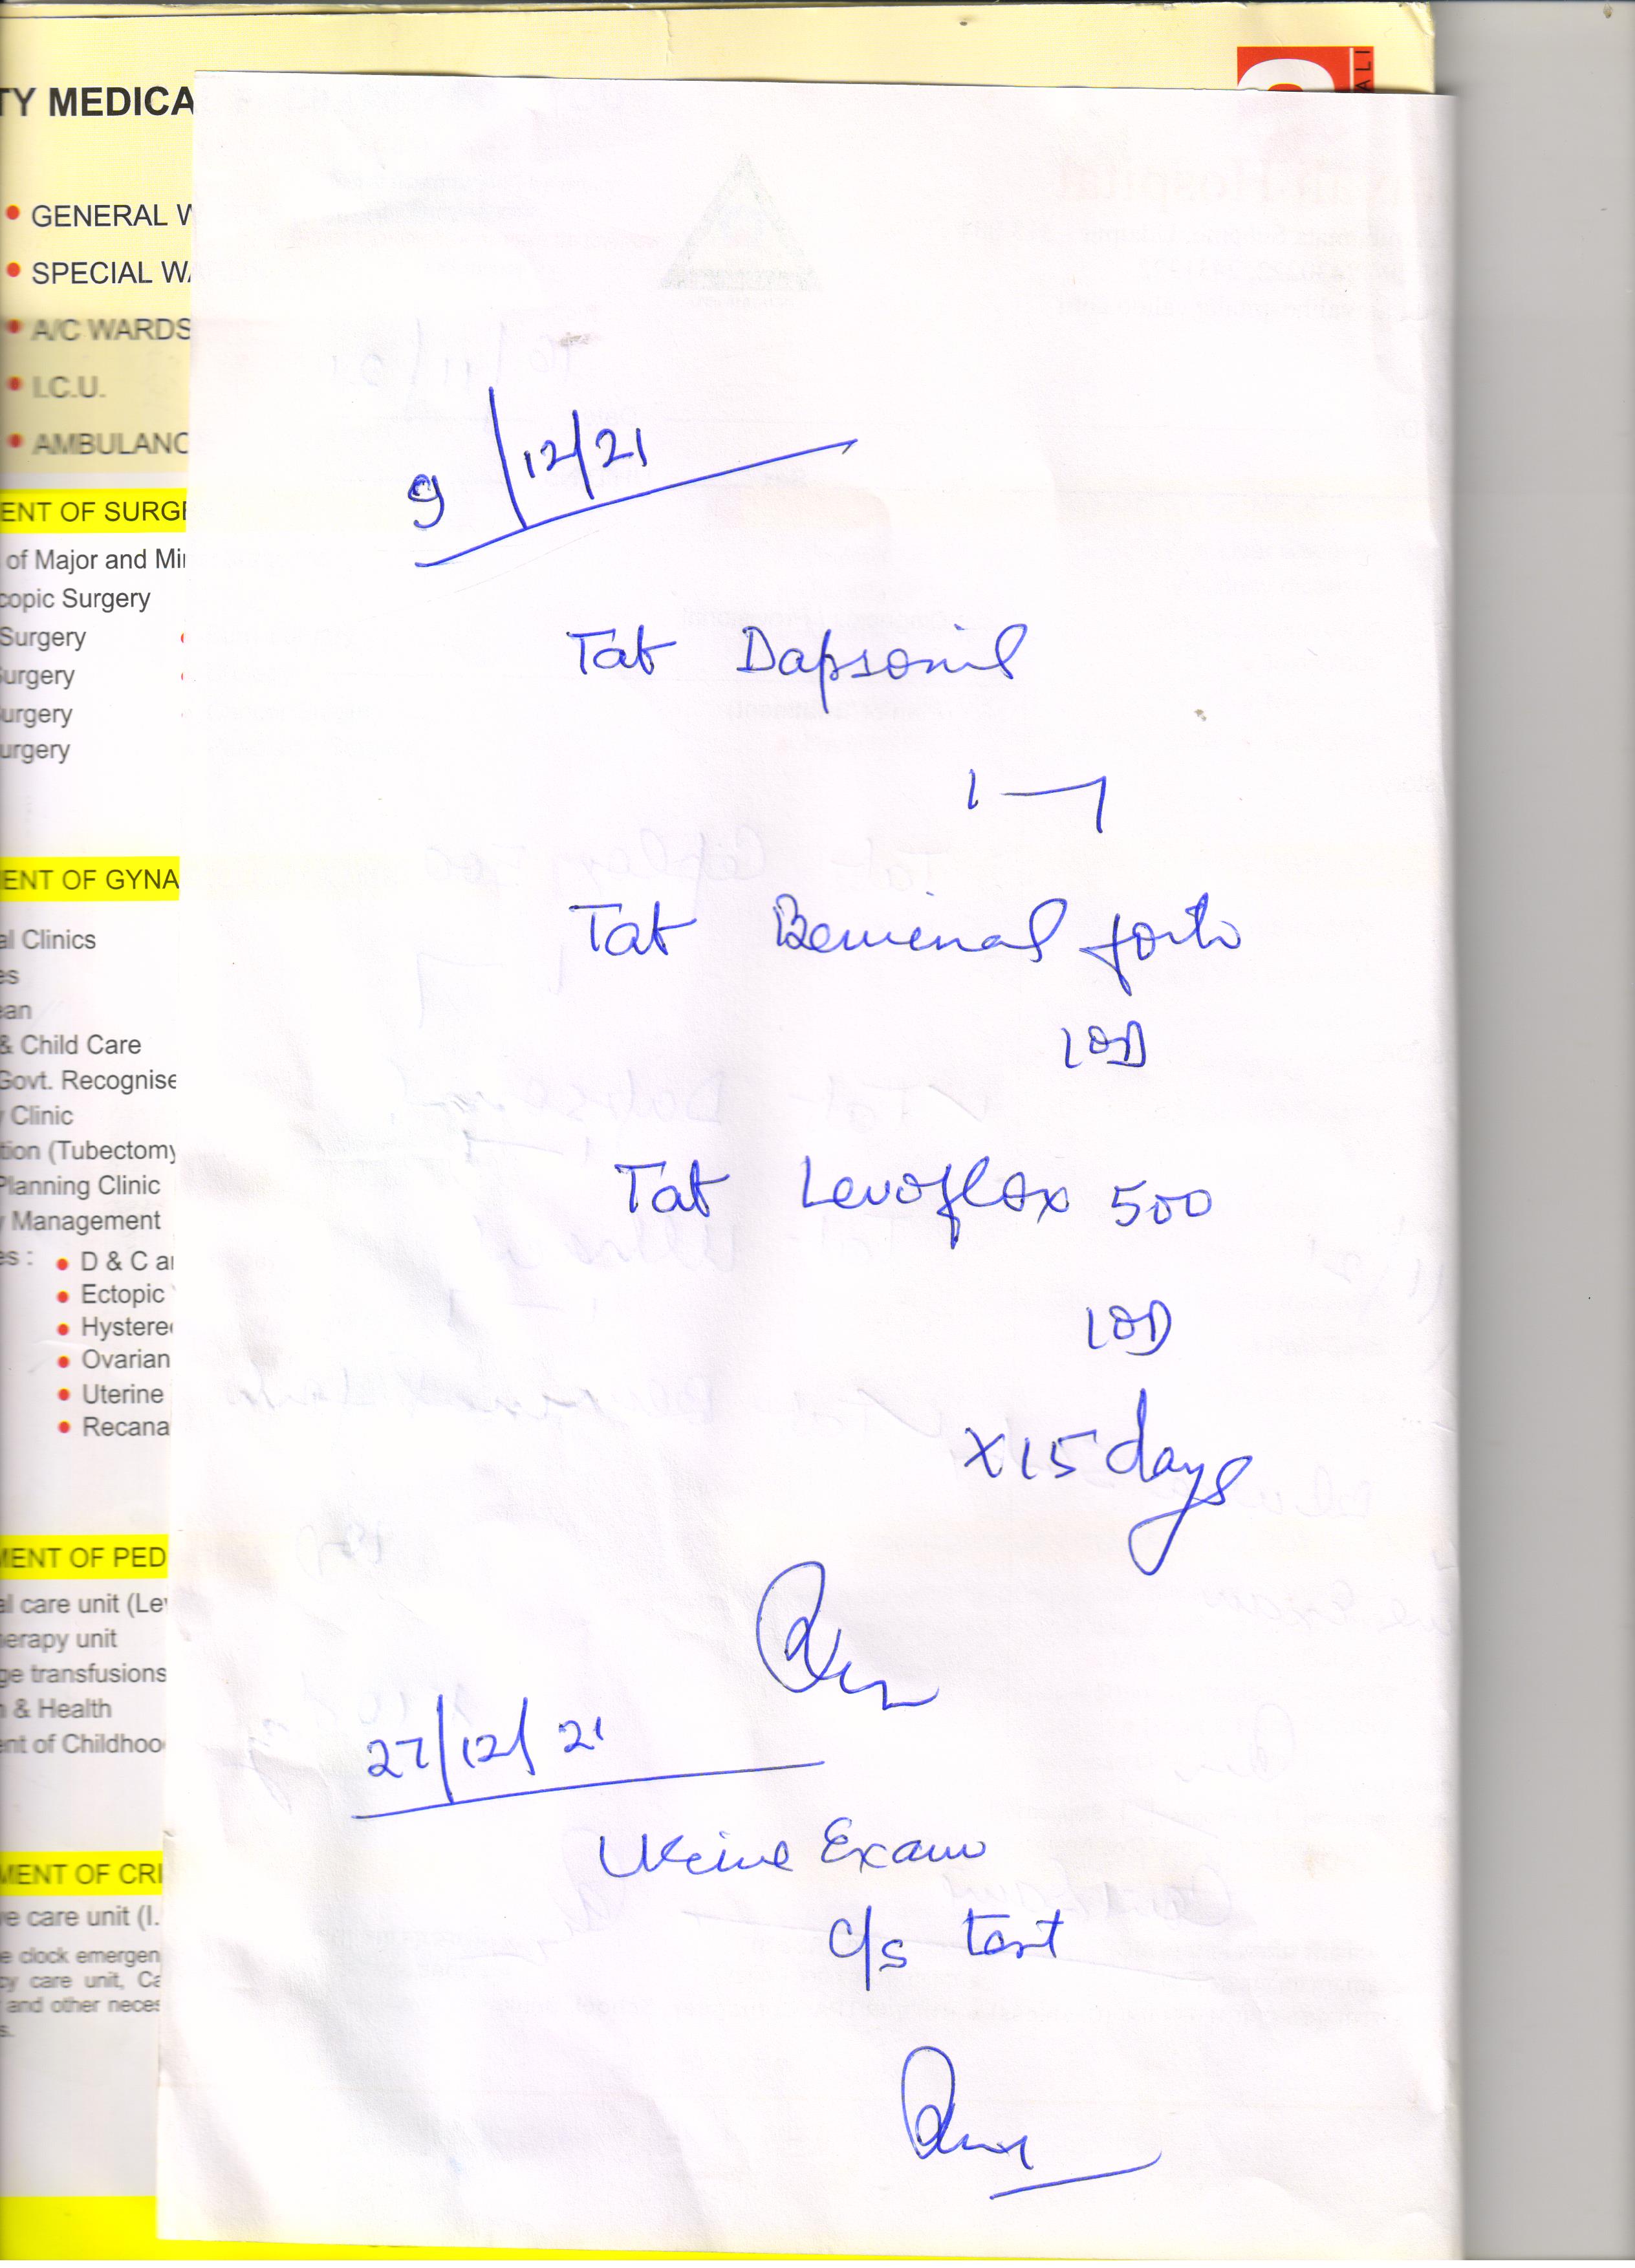 TY MEDICA
ALI
GENERAL W
SPECIAL WA
A/C WARDS
I.C.U.
AMBULANC
ENT OF SURG
of Major and Mi
copic Surgery
Surgery
urgery
urgery
urgery
ENT OF GYNA
al Clinics
es
ean
& Child Care
Govt. Recognise
Clinic
tion (Tubectomy
Planning Clinic
Management
es :
D & C a
Ectopic
Hystere
Ovarian
Uterine
Recana
MENT OF PED
al care unit (Le
erapy unit
ge transfusions
& Health
nt of Childhoo
MENT OF CRI
e care unit (I.
e clock emergen
cy care unit, Ca
and other neces
s.
9/12/21
Tab Dapsonil
1—1
Tab Beminal forte
1OD
Tab Levoflox 500
1OD
x15 days
27/12/21
Urine Exam
c/s test